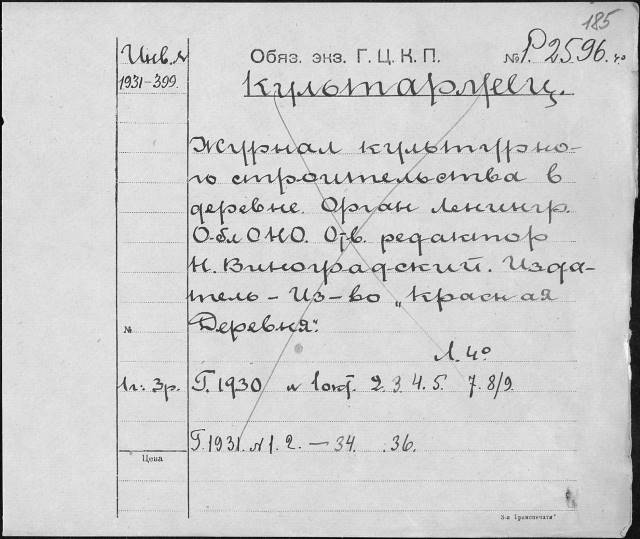 185
Инв. №
1931-399.
Обяз. экз. Г. Ц. К. П.
№ Р. 2596. 4°
Культармеец.
Журнал культурно-
го строительства в
деревне. Орган Ленингр.
ОблОНО. Отв. редактор
Н. Виноградский. Изда-
тель – Из-во „Красная
Деревня".
№
Л. 4°
1г.: 3р. Г. 1930 № 1окт. 2. 3. 4. 5. 7. 8/9.
Г. 1931. № 1. 2. — 34. .36.
Цена
3-я „Транспечати"